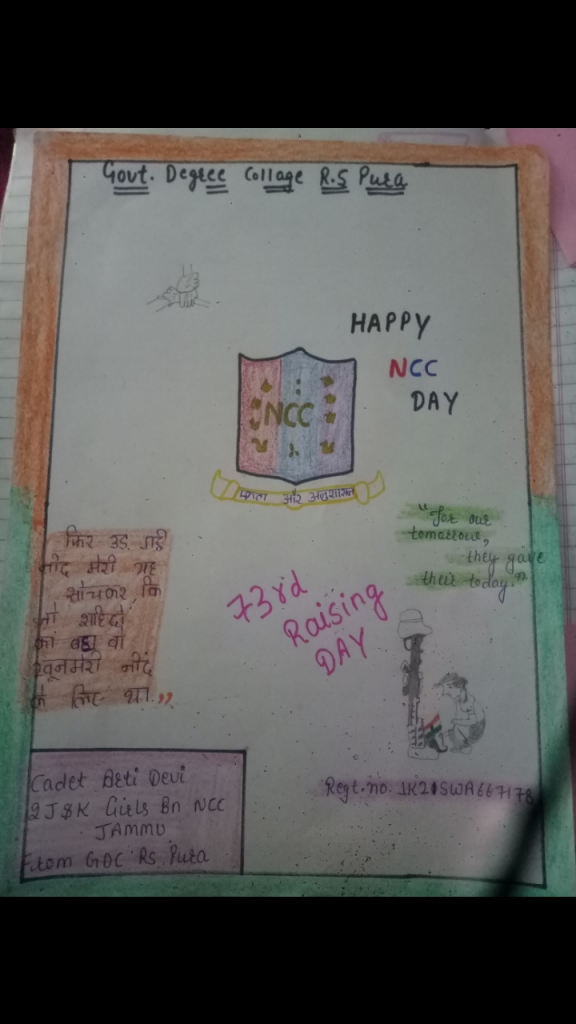 Govt. Degree Collage R.S Pura
HAPPY
NCC
DAY
NCC
एकता और अनुशासन
"for our
tomorrow,
they gave
their today."
फिर उड़ गई
नींद मेरी यह
सोचकर कि
जो शहिदो
का बहा वो
खून मेरी नींद
के लिए था.,,
73rd
Raising
DAY
Cadet Arti Devi
2 J&K Girls Bn NCC
JAMMU
From GDC RS Pura
Regt.no. JK21SWA667178